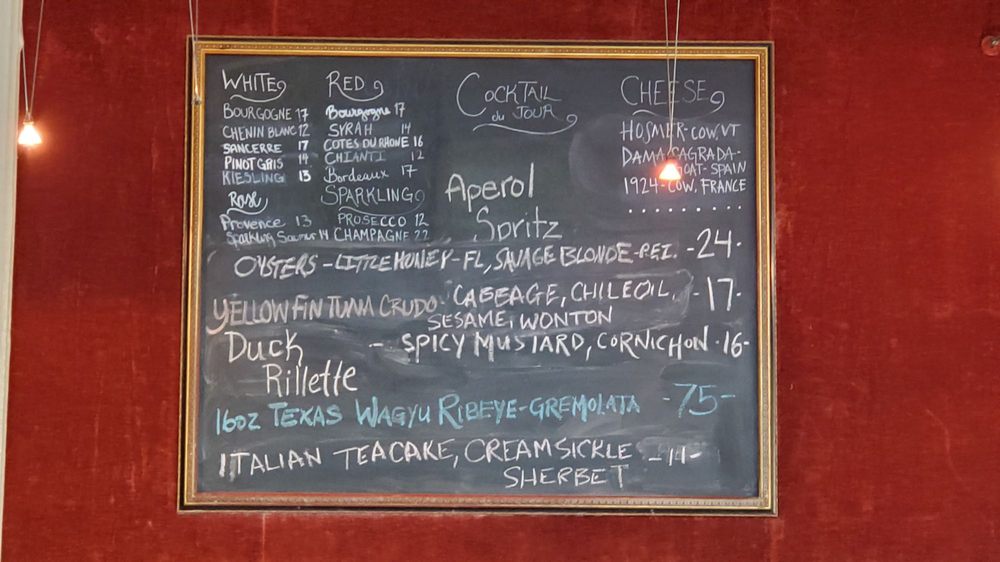 WHITE
BOURGOGNE 17
CHENIN BLANC 12
SANCERRE 17
PINOT GRIS 14
RIESLING 13
Rosé
Provence 13
Sparkling Saumur 14
RED
Bourgogne 17
SYRAH 14
COTES DU RHONE 16
CHIANTI 12
Bordeaux 17
SPARKLING
PROSECCO 12
CHAMPAGNE 22
COCKTAIL
du JOUR
Aperol
Spritz
CHEESE
HOSMER-COW, VT
DAMA SAGRADA-
GOAT-SPAIN
1924-COW. FRANCE
OYSTERS - LITTLE HONEY-FL, SAVAGE BLONDE-P.E.I. -24-
YELLOWFIN TUNA CRUDO CABBAGE, CHILE OIL, -17-
SESAME, WONTON
Duck - SPICY MUSTARD, CORNICHON -16-
Rillette
16oz TEXAS WAGYU RIBEYE-GREMOLATA -75-
ITALIAN TEACAKE, CREAMSICKLE -14-
SHERBET